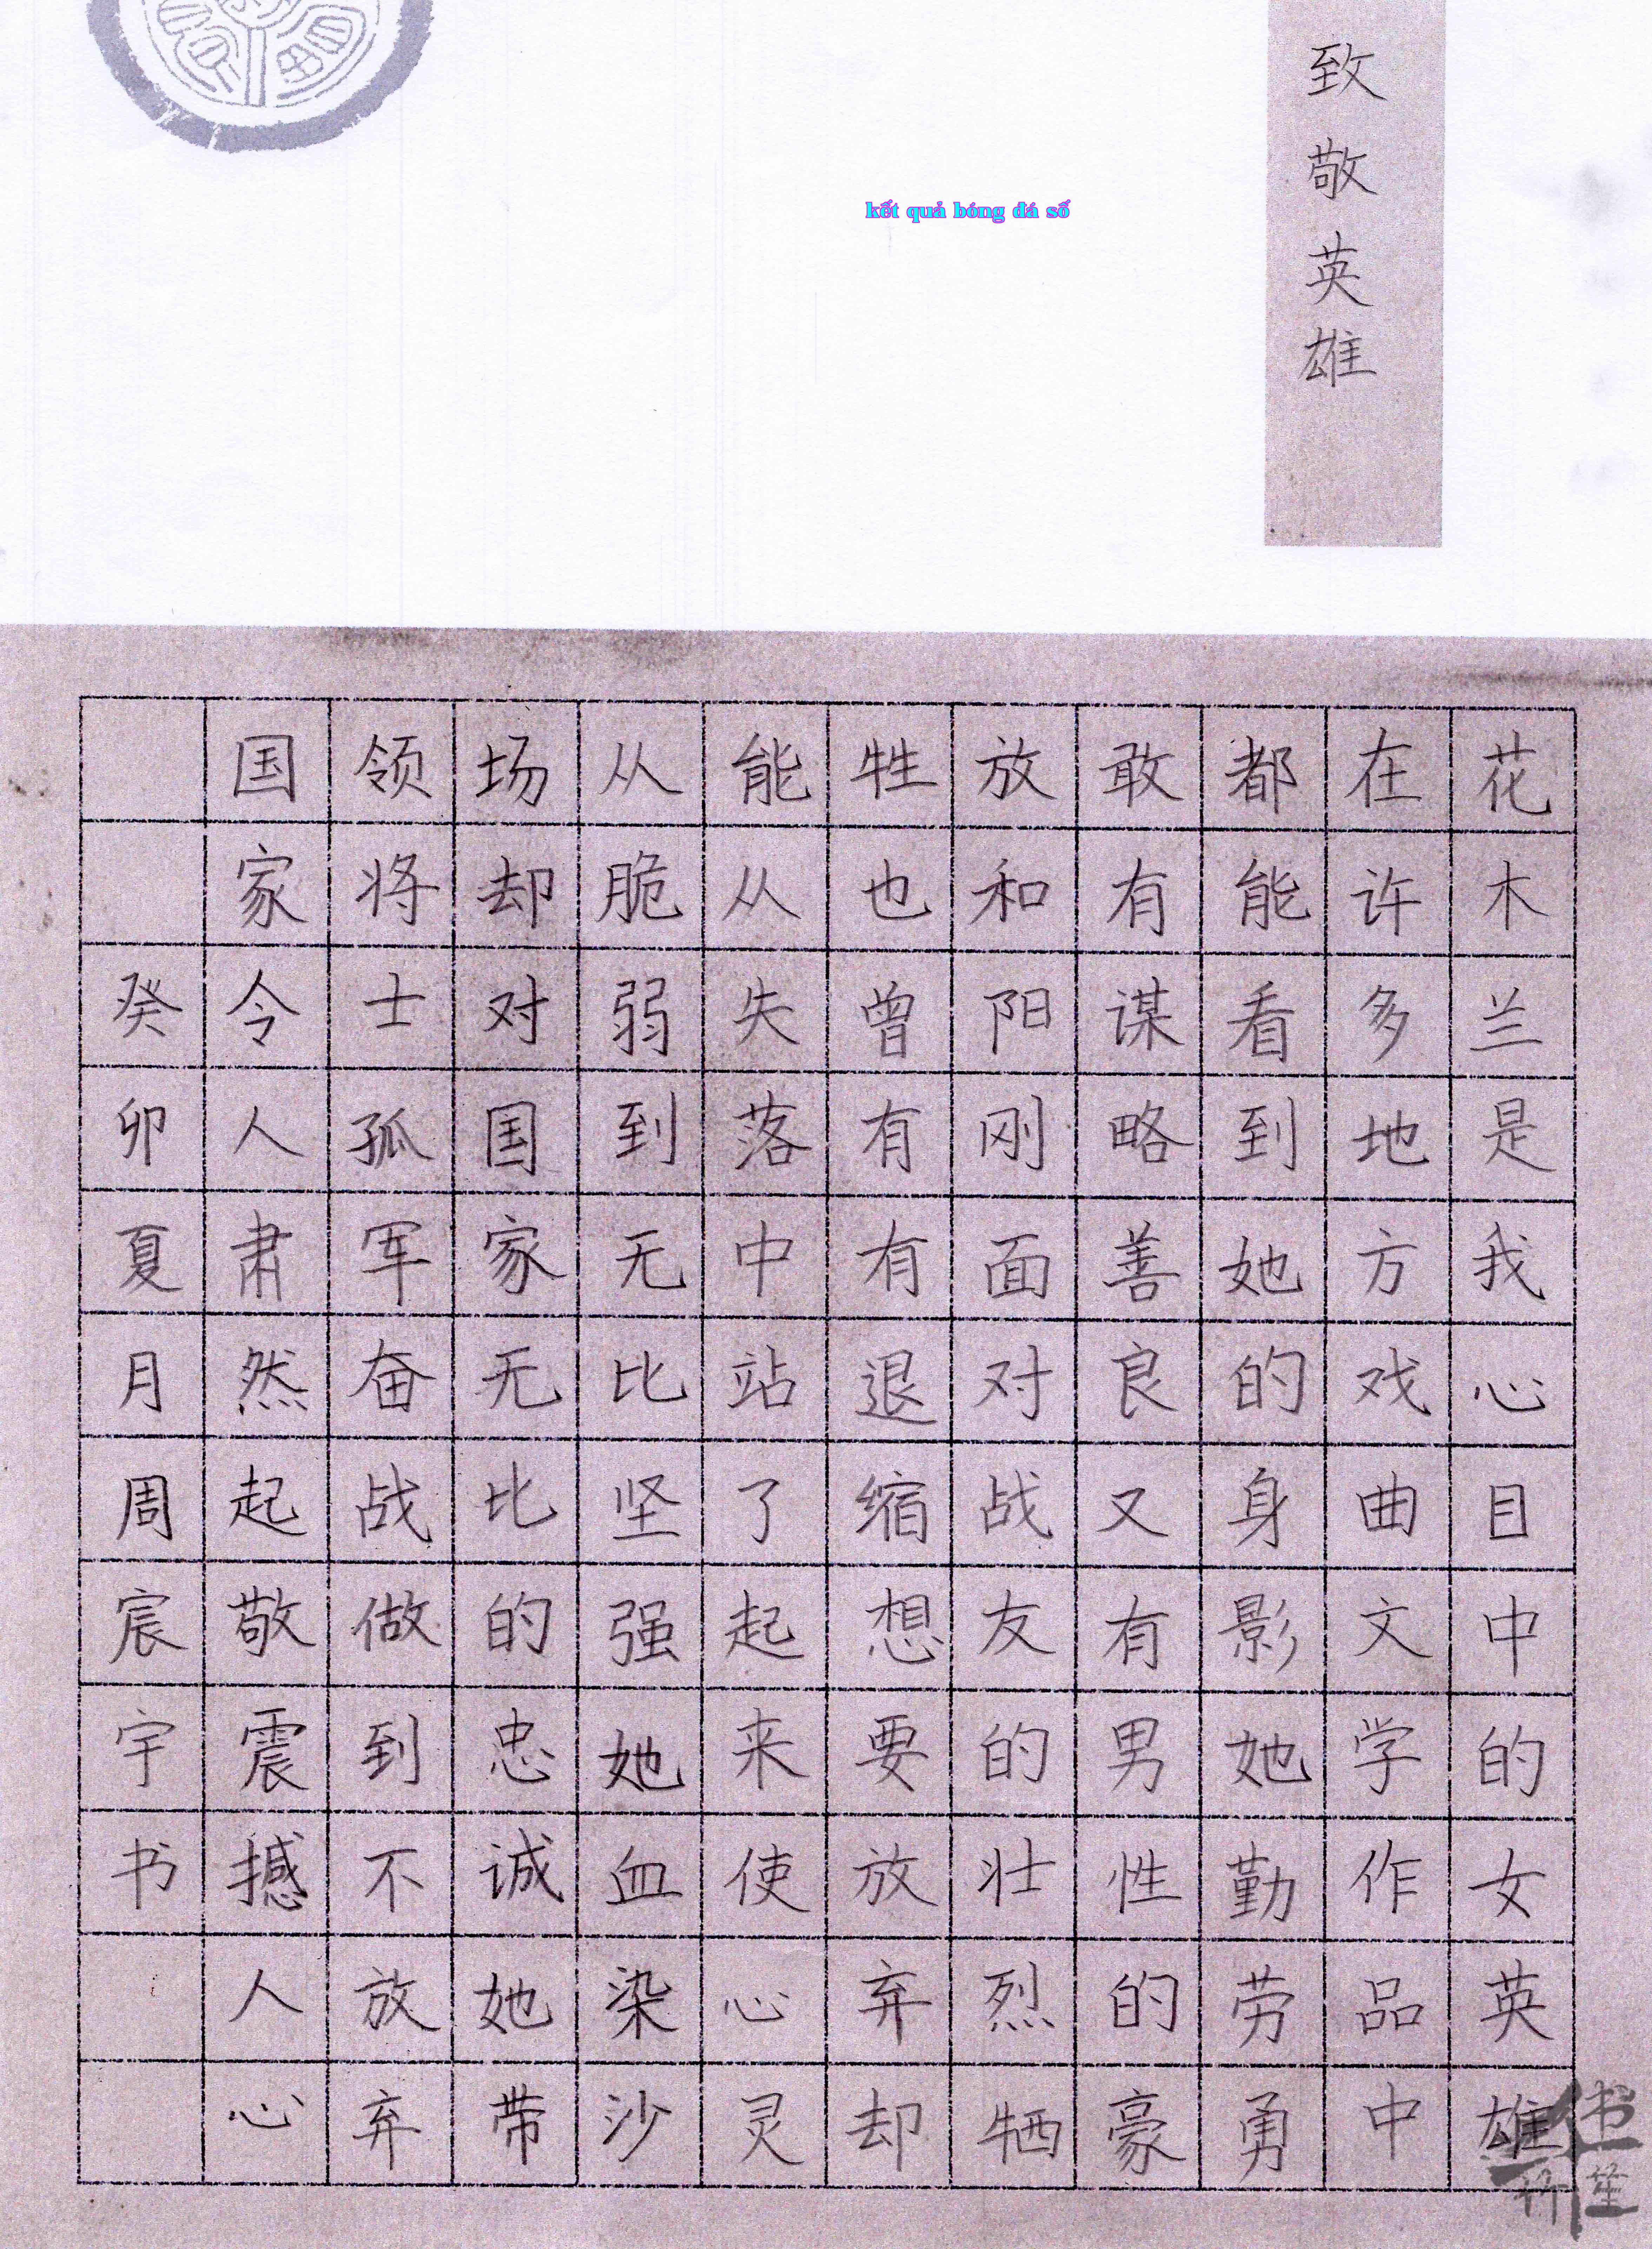 致敬英雄
kết quả bóng đá số
花木兰是我心目中的女英雄
在许多地方戏曲文学作品中
都能看到她的身影她勤劳勇
敢有谋略善良又有男性的豪
放和阳刚面对战友的壮烈牺
牲也曾有有退缩想要放弃却
能从失落中站了起来使心灵
从脆弱到无比坚强她血染沙
场却对国家无比的忠诚她带
领将士孤军奋战做到不放弃
国家令人肃然起敬震撼人心
癸卯夏月周宸宇书